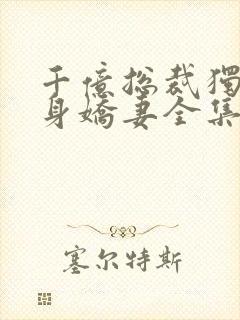 千億総裁獨
身嬌妻全集
塞尔特斯